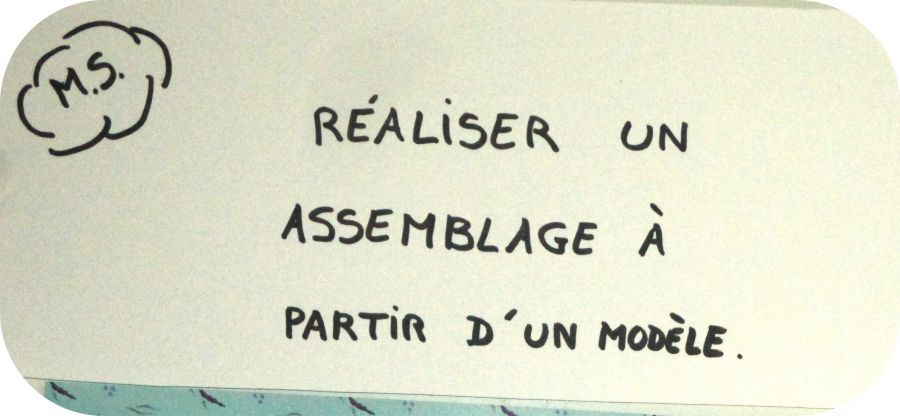 M.S.
RÉALiSER UN
ASSEMBLAGE À
PARTiR D'UN MODÈLE.